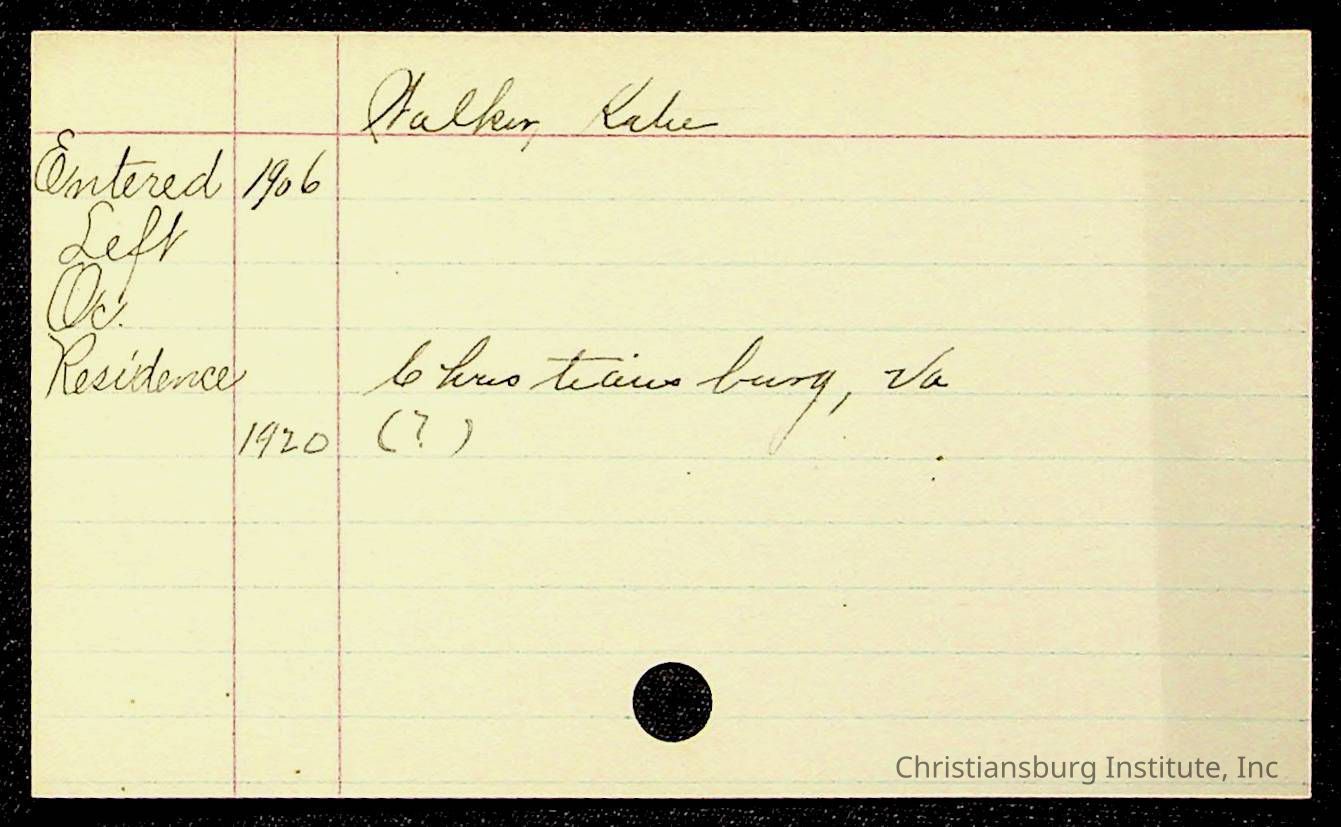 Walker, Katie
Entered 1906
Left
Oc.
Residence Christiansburg, Va
1920 (?)
Christiansburg Institute, Inc